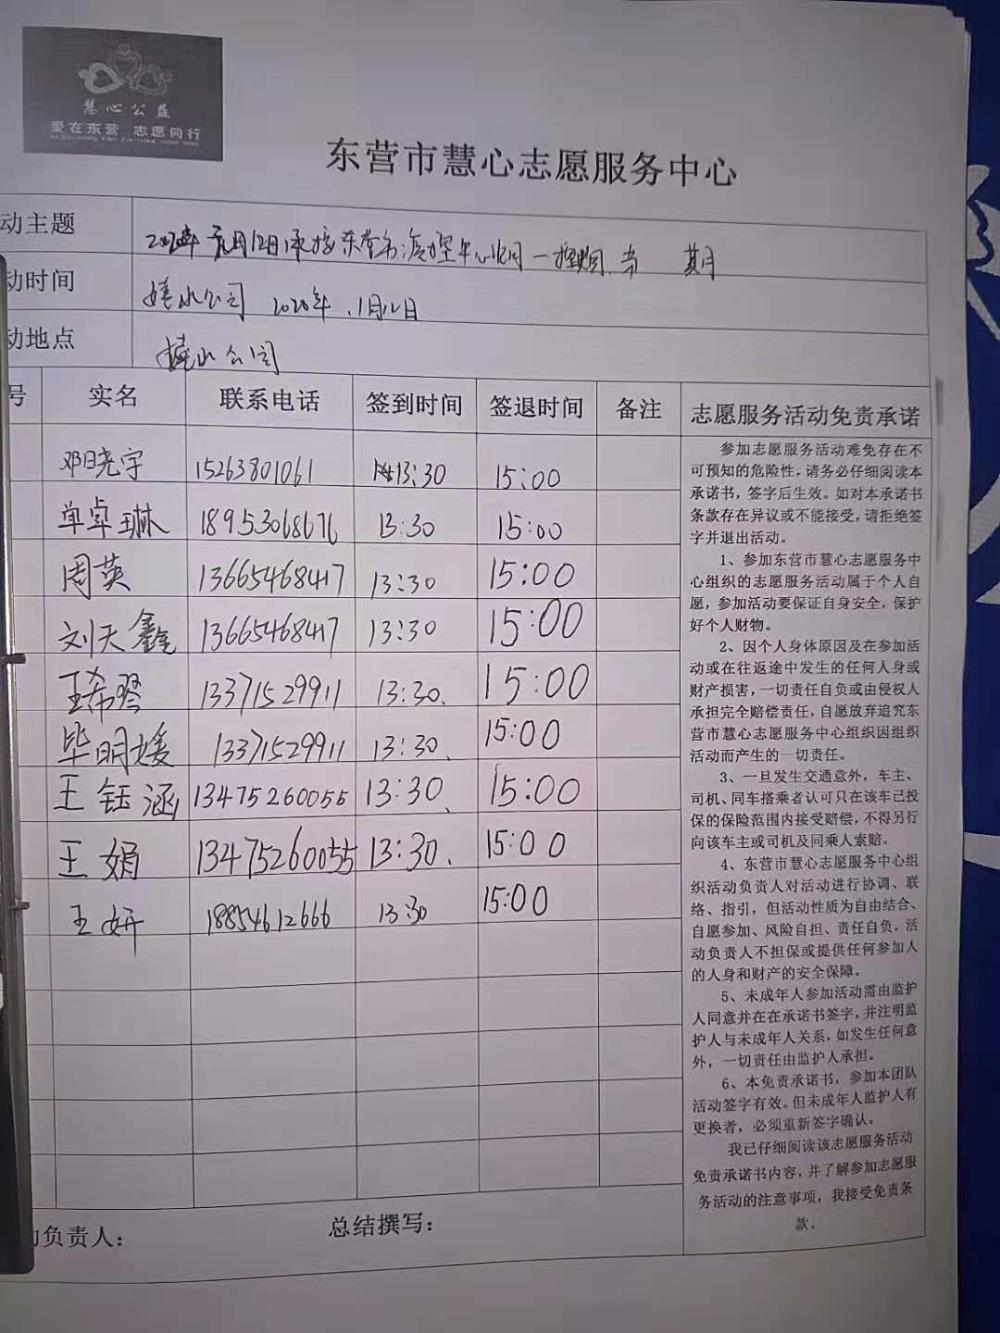 慧心公益
爱在东营 志愿同行
东营市慧心志愿服务中心
动主题
2020年元月12日 期
动时间
公司 2020年.1月12日
动地点
公司
号 实名 联系电话 签到时间 签退时间 备注 志愿服务活动免责承诺
邓晓宇 15263801061 13:30 15:00
单卓琳 18953068676 13:30 15:00
周英 13665468417 13:30 15:00
刘天鑫 13665468417 13:30 15:00
王希 13371529911 13:30. 15:00
毕明媛 13371529911 13:30. 15:00
王钰涵 13475260055 13:30. 15:00
王娟 13475260055 13:30. 15:00
王妍 18854612666 13:30 15:00
参加志愿服务活动难免存在不
可预知的危险性，请务必仔细阅读本
承诺书，签字后生效。如对本承诺书
条款存在异议或不能接受，请拒绝签
字并退出活动。
1、参加东营市慧心志愿服务中
心组织的志愿服务活动属于个人自
愿，参加活动要保证自身安全，保护
好个人财物。
2、因个人身体原因及在参加活
动或在往返途中发生的任何人身或
财产损害，一切责任自负或由侵权人
承担完全赔偿责任，自愿放弃追究东
营市慧心志愿服务中心组织因组织
活动而产生的一切责任。
3、一旦发生交通意外，车主、
司机、同车搭乘者认可只在该车已投
保的保险范围内接受赔偿，不得另行
向该车主或司机及同乘人索赔。
4、东营市慧心志愿服务中心组
织活动负责人对活动进行协调、联
络、指引，但活动性质为自由结合、
自愿参加、风险自担、责任自负。活
动负责人不担保或提供任何参加人
的人身和财产的安全保障。
5、未成年人参加活动需由监护
人同意并在在承诺书签字，并注明监
护人与未成年人关系，如发生任何意
外，一切责任由监护人承担。
6、本免责承诺书，参加本团队
活动签字有效。但未成年人监护人有
更换者，必须重新签字确认。
我已仔细阅读该志愿服务活动
免责承诺书内容，并了解参加志愿服
务活动的注意事项，我接受免责条
款。
动负责人： 总结撰写：